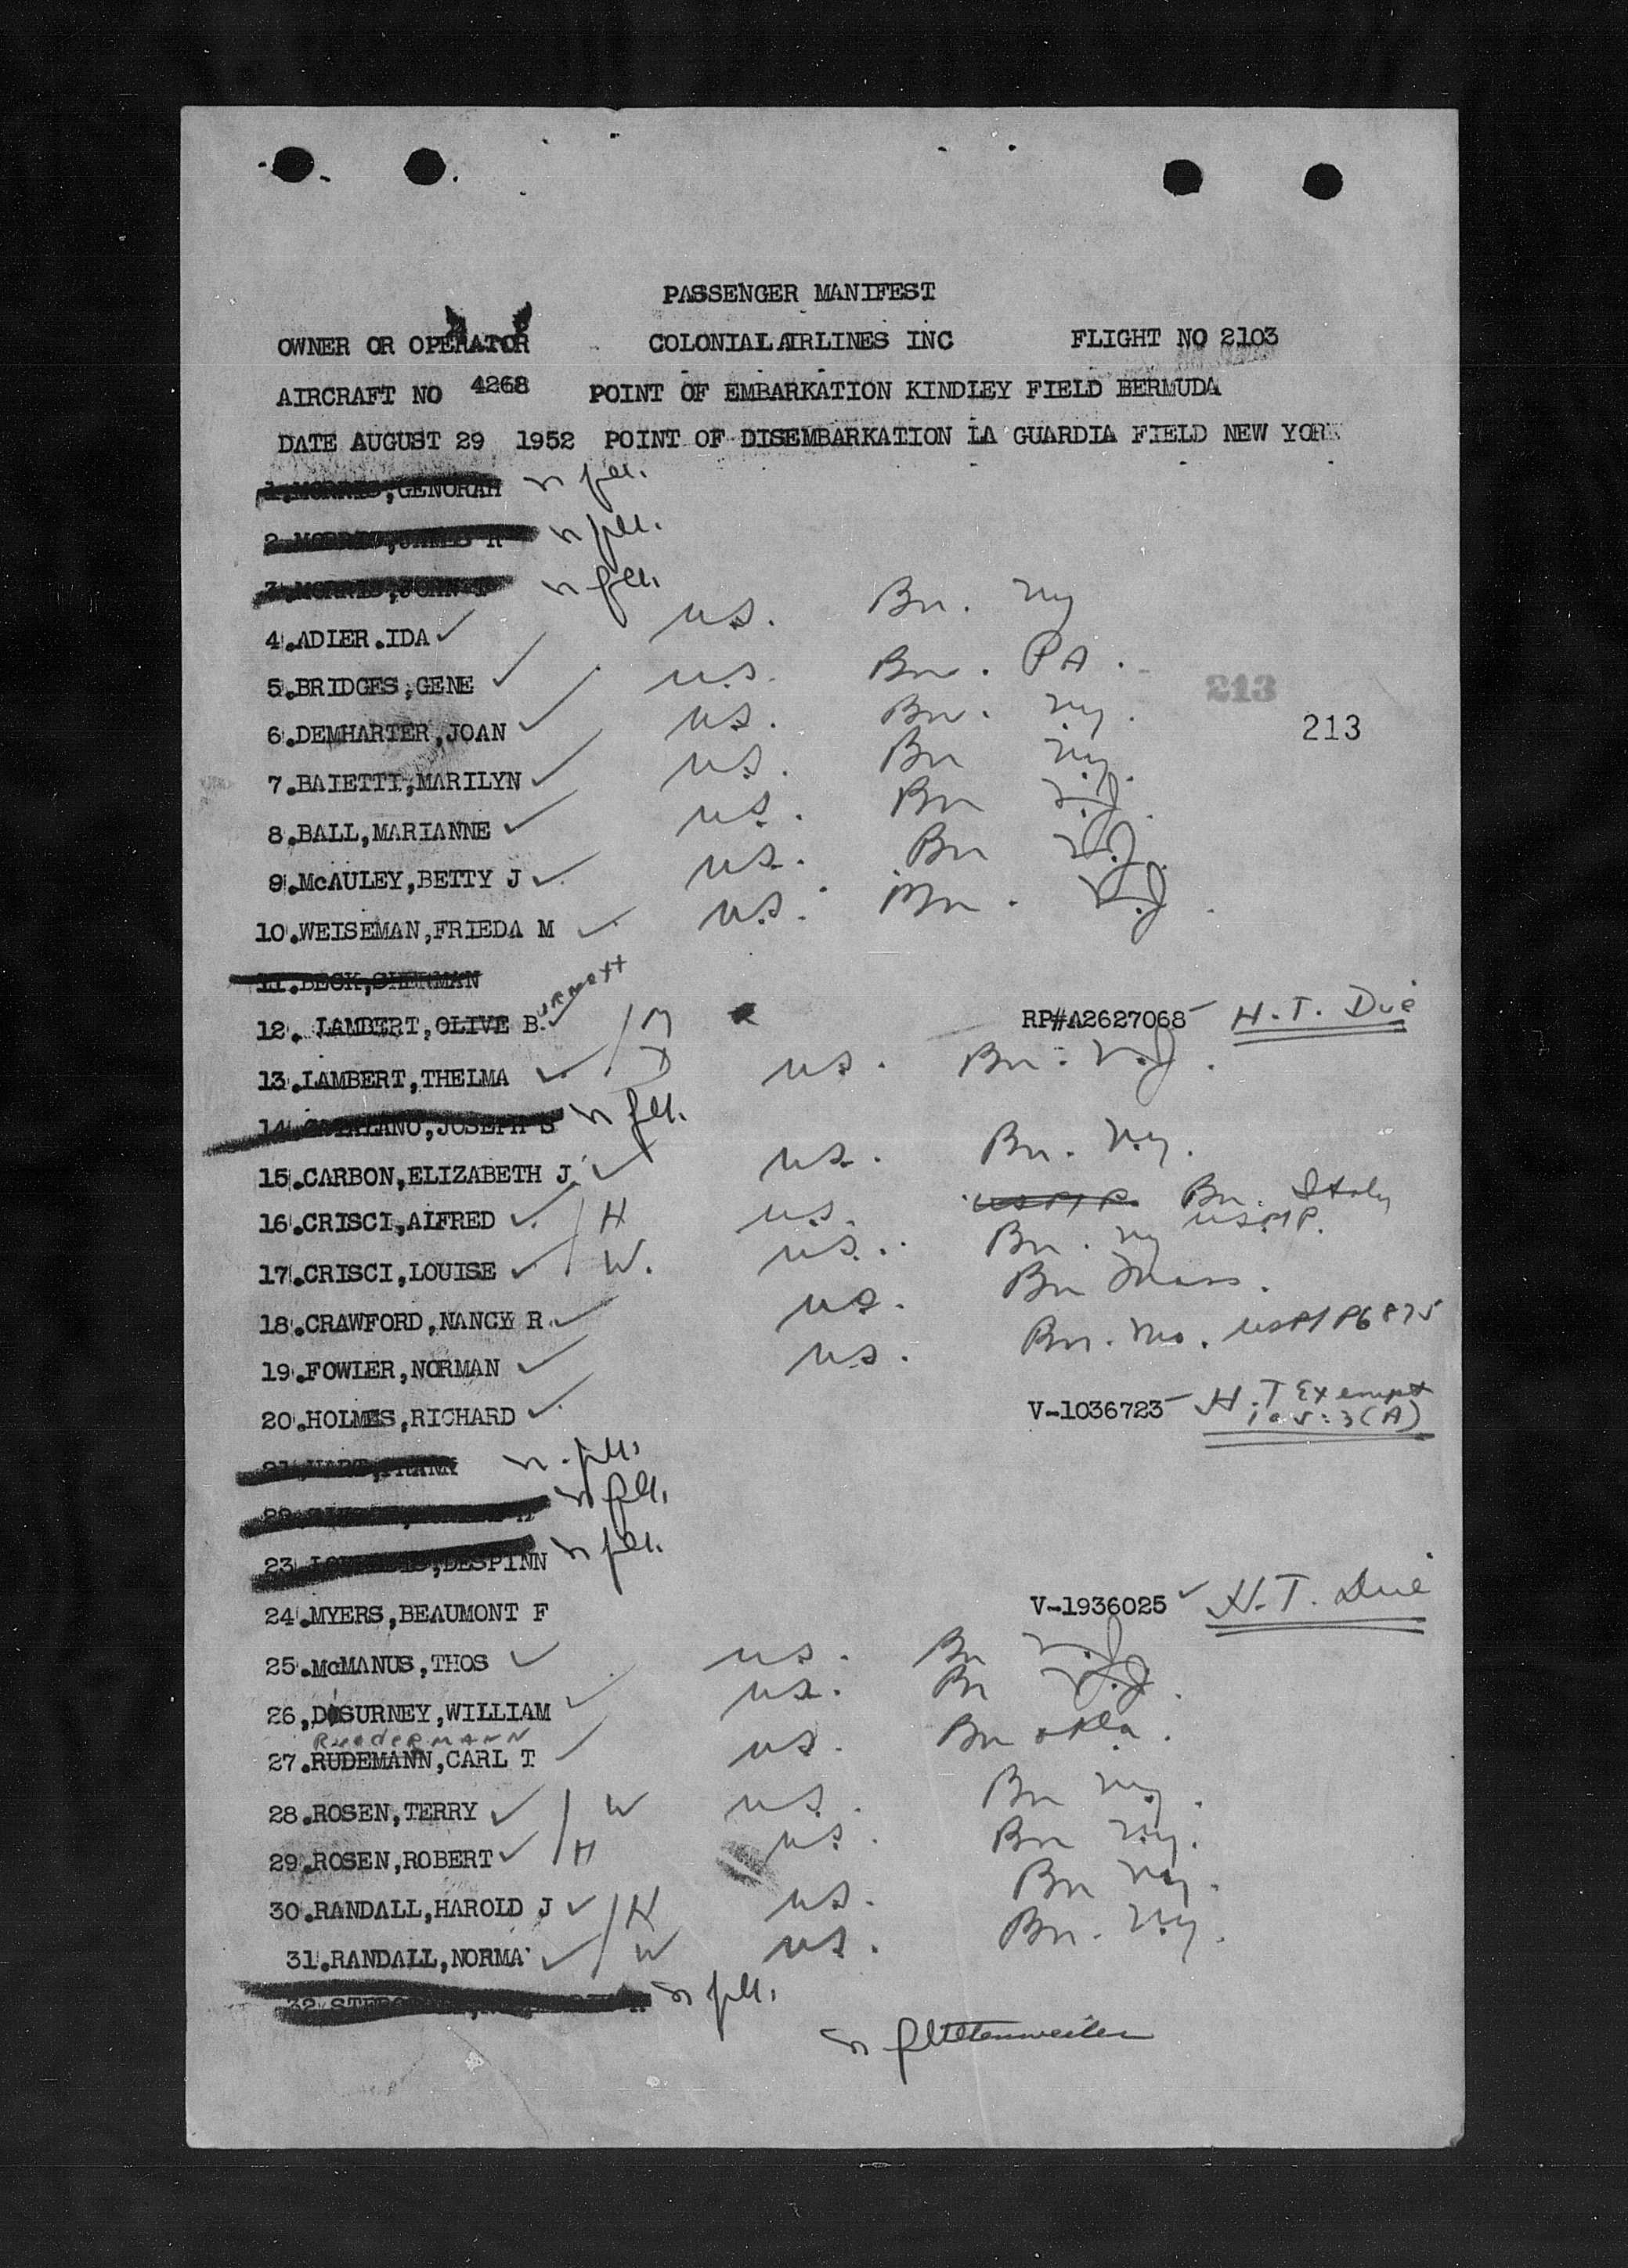 PASSENGER MANIFEST
OWNER OR OPERATOR COLONIAL AIRLINES INC FLIGHT NO 2103
AIRCRAFT NO 4268 POINT OF EMBARKATION KINDLEY FIELD BERMUDA
DATE AUGUST 29 1952 POINT OF DISEMBARKATION LA GUARDIA FIELD NEW YORK
1.MORRIS,GENORAH
2.MORRIS,JAMES R
3.MORRIS,JOHN
4.ADLER.IDA U.S. Bn. NY
5.BRIDGES,GENE U.S. Bn. PA.
213
6.DEMHARTER,JOAN U.S. Bn. N.Y.
213
7.BAIETTI,MARILYN U.S. Bn N.Y.
8.BALL,MARIANNE U.S. Bn N.J.
9.McAULEY,BETTY J U.S. Bn N.J.
10.WEISEMAN,FRIEDA M U.S. Bn. N.J.
11.BECK,SHERMAN
12. LAMBERT,OLIVE B. M RP#A2627068 H.T. Due
13.LAMBERT,THELMA D U.S. Bn. N.J.
14. ,JOSEPH S
15.CARBON,ELIZABETH J. U.S. Bn. N.Y.
16.CRISCI,ALFRED H U.S. USPP Bn. Italy
USPP.
17.CRISCI,LOUISE W. U.S. Bn. NY
18.CRAWFORD,NANCY R. U.S. Bn Mass.
19.FOWLER,NORMAN U.S. Bn. Mo. USPP P6875
20.HOLMES,RICHARD V-1036723 H.T Exempt
105:3(A)
21.HART,FRANK
22
23 ,DESPINN
24.MYERS,BEAUMONT F V-1936025 H.T. Due
25.McMANUS,THOS U.S. Bn N.J.
26,DiSURNEY,WILLIAM U.S. Bn N.J.
RuedeRMANN
27.RUDEMANN,CARL T U.S. Bn okla.
28.ROSEN,TERRY W U.S. Bn N.Y.
29.ROSEN,ROBERT H U.S. Bn N.Y.
30.RANDALL,HAROLD J H U.S. Bn N.Y.
31.RANDALL,NORMA W U.S. Bn. N.Y.
32